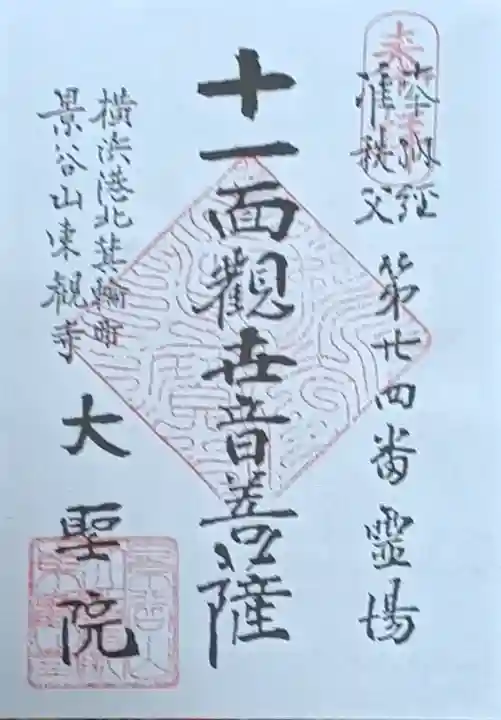 奉納経
准秩父
第廿四番霊場
十一面觀世音菩薩
横浜港北箕輪町
景谷山東観寺
大聖院